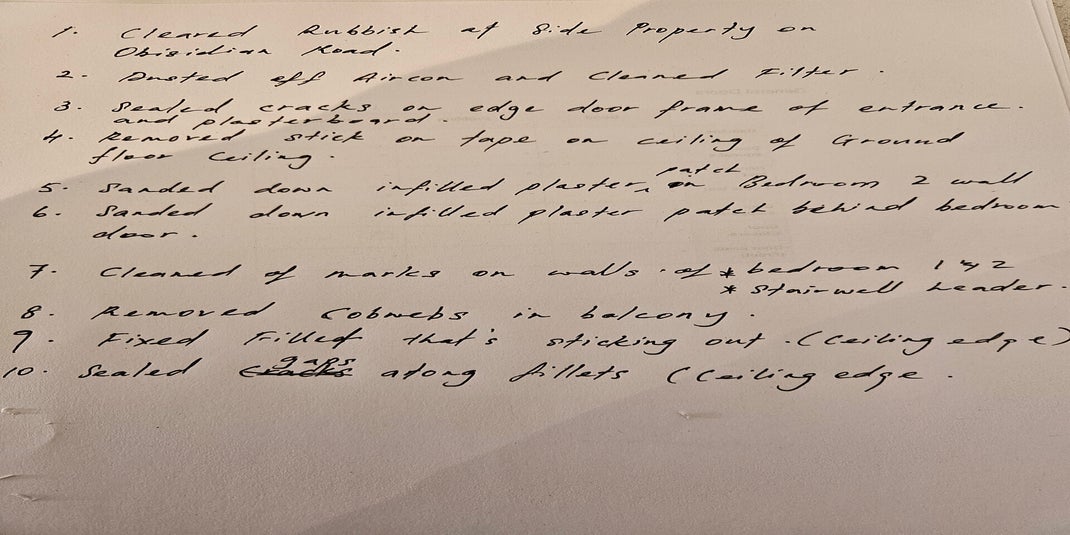 1. Cleared Rubbish at Side Property on
Obisidian Road.
2. Dusted off Aircon and Cleaned Filter.
3. Sealed cracks on edge door frame of entrance.
and plasterboard.
4. Removed stick on tape on ceiling of Ground
floor Ceiling.
5. Sanded down infilled plaster patch on Bedroom 2 wall
6. Sanded down infilled plaster patch behind bedroom
door.
7. Cleaned of marks on walls. of * bedroom 1 & 2
* Stairwell Leader.
8. Removed Cobwebs in balcony.
9. Fixed Filled that's sticking out. (Ceiling edge)
10. Sealed gaps along fillets (Ceiling edge.